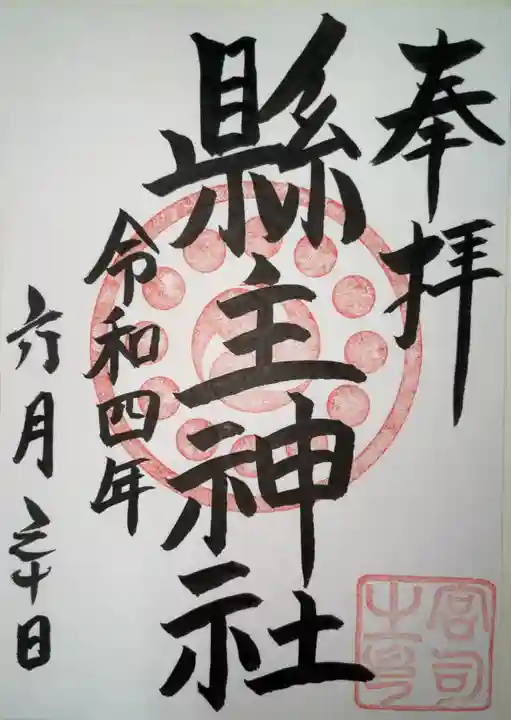 奉拝
縣主神社
令和四年
六月三十日
宮司之印